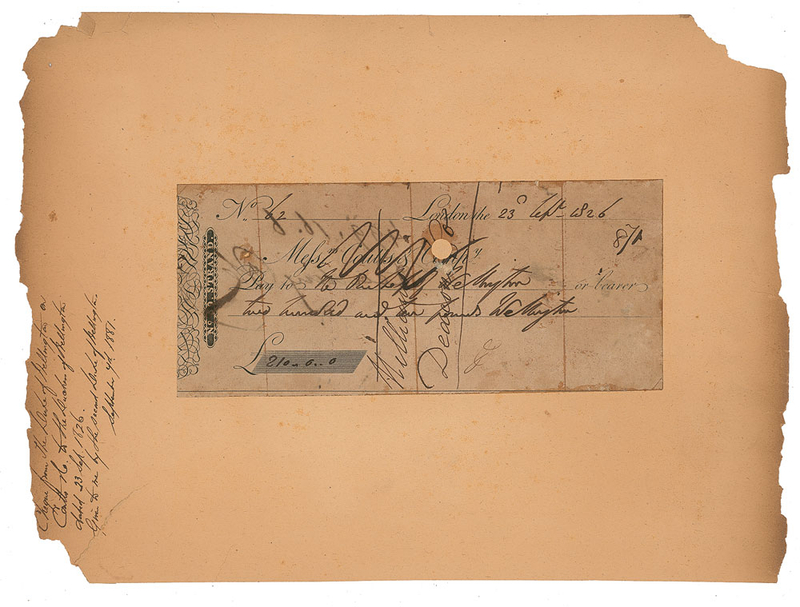 No. 62 London the 23d Sept 1826
87
Messrs Coutts & Compy.
Pay to the Duchess of Wellington or bearer
two hundred and ten pounds Wellington
£ 210 - 0 - 0
Williams
Deacon
Cheque from The Duke of Wellington on
Coutts & Co. to the Duchess of Wellington
dated 23 Sep. 1826.
Given to me by the second Duke of Wellington
September 1881.